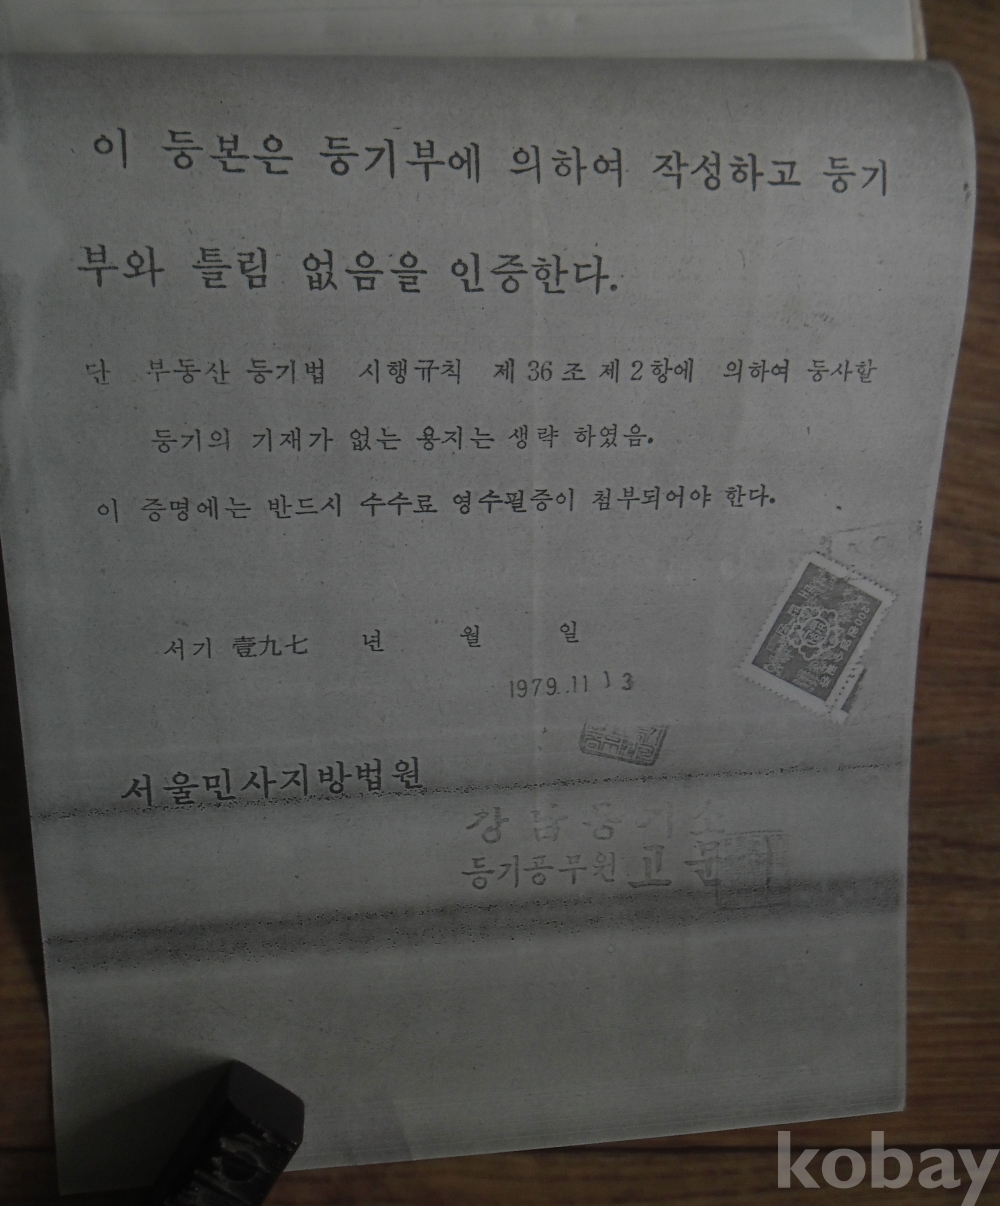 이 등본은 등기부에 의하여 작성하고 등기
부와 틀림 없음을 인증한다.
단 부동산 등기법 시행규칙 제 36 조 제 2 항에 의하여 등사할
등기의 기재가 없는 용지는 생략 하였음.
이 증명에는 반드시 수수료 영수필증이 첨부되어야 한다.
서기 壹九七 년 월 일
1979.11 13
서울민사지방법원
강남등기소
등기공무원 고
kobay